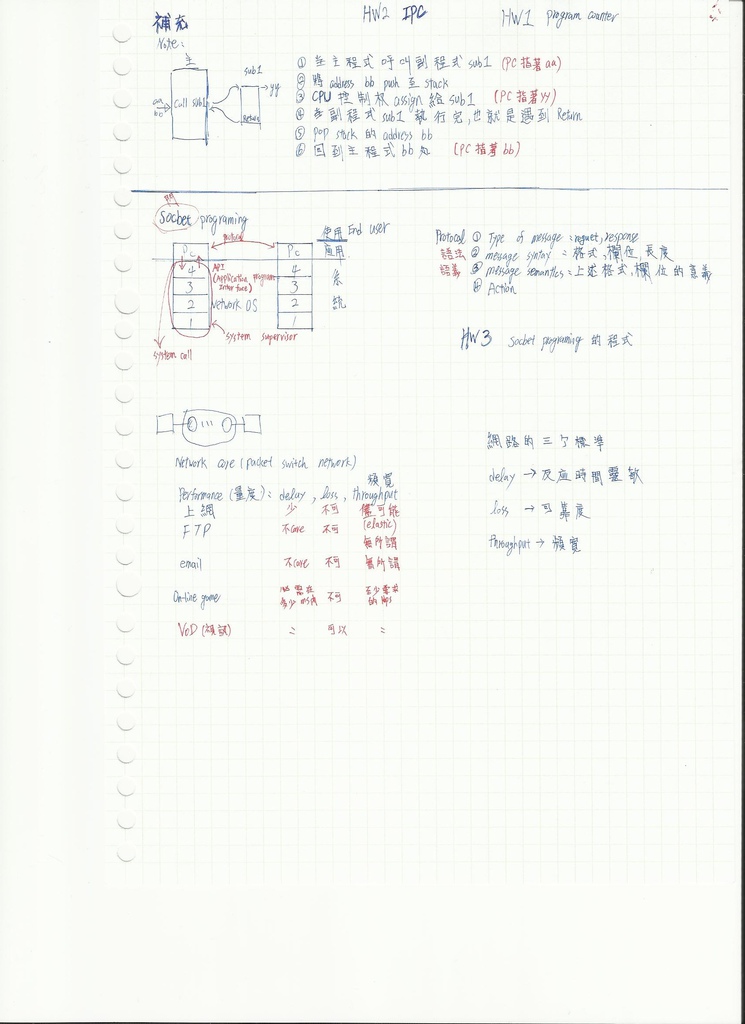 補充
HW2 IPC
HW1 program counter
Note:
主
sub1
① 在主程式呼叫副程式 sub1 (PC指著aa)
② 將 address bb push 至 stack
③ CPU 控制权 assign 給 sub1 (PC指著yy)
④ 在副程式 sub1 執行完,也就是遇到 Return
⑤ pop stack 的 address bb
⑥ 回到主程式 bb 処 (PC指著bb)
aa
bb
call sub1
yy
Return
Socket programing
protocol
使用 End user
應用
PC
PC
4
3
2
1
4
3
2
1
API
(Application program
Interface)
Network OS
系
統
system supervisor
system call
Protocol ① Type of message : request, response
語法 ② message syntax : 格式,欄位,長度
語義 ③ message semantics : 上述格式,欄位的意義
④ Action
HW3 Socket programing 的程式
Network core (packet switch network)
頻寬
Performance (量度) : delay , loss , throughput
上網 少 不可 儘可能
(elastic)
FTP 不care 不可 無所謂
email 不care 不可 無所謂
On-line game 需在多少ms內 不可 至少需求的bps
VoD (視訊) 〃 可以 〃
網路的三个標準
delay → 反应時間靈敏
loss → 可靠度
throughput → 頻寬